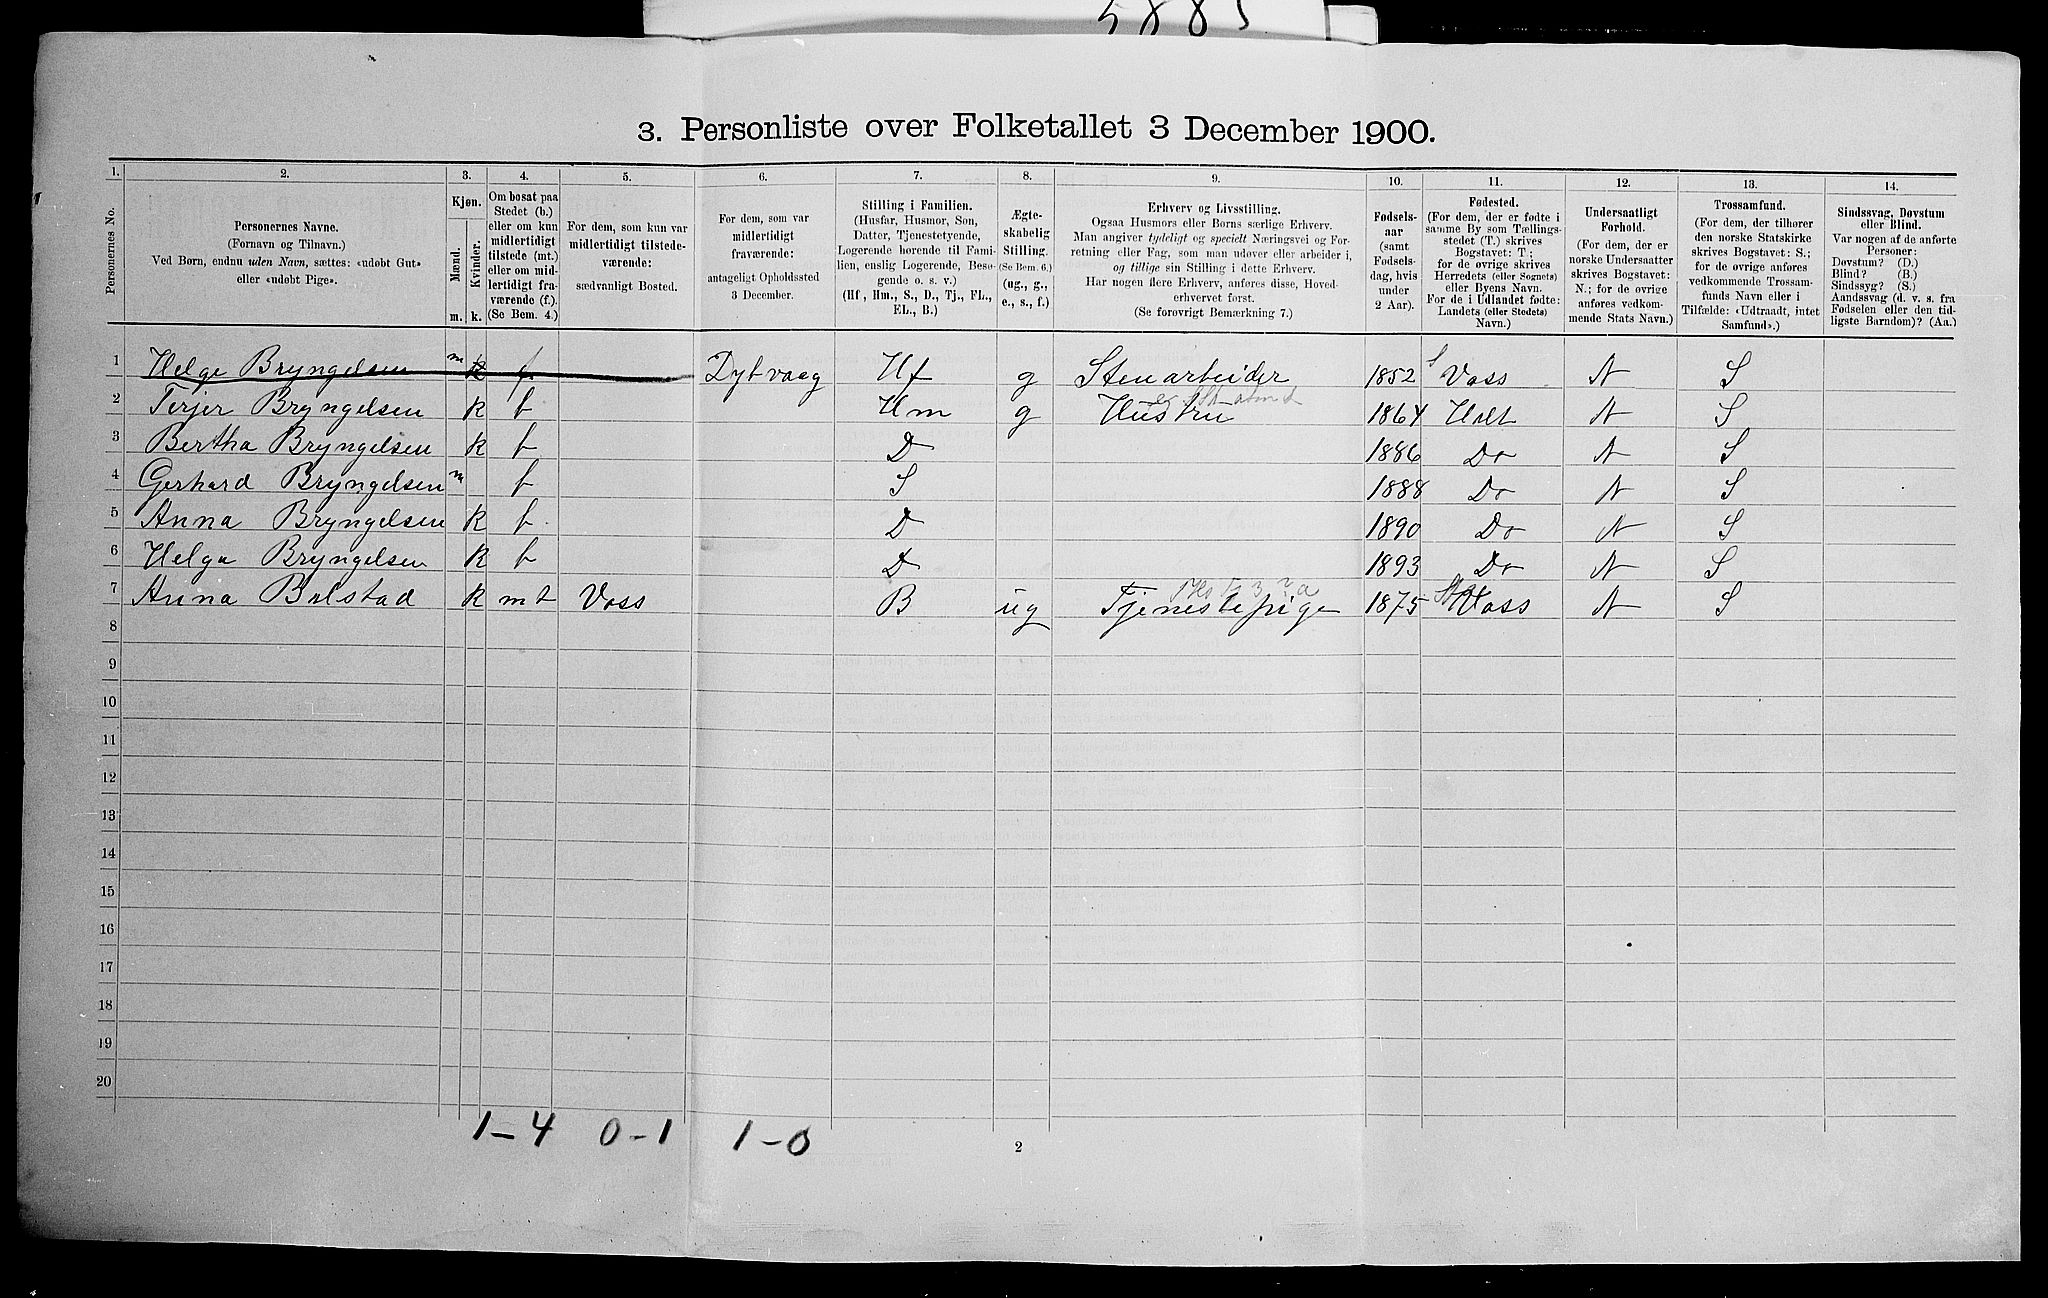 5883
3. Personliste over Folketallet 3 December 1900.
1. 2. 3. 4. 5. 6. 7. 8. 9. 10. 11. 12. 13. 14.
Personernes No.
Personernes Navne.
(Fornavn og Tilnavn.)
Ved Børn, endnu uden Navn, sættes: «udøbt Gut»
eller «udøbt Pige».
Kjøn.
Mænd.
Kvinder.
m. k.
Om bosat paa
Stedet (b.)
eller om kun
midlertidigt
tilstede (mt.)
eller om mid-
lertidigt fra-
værende (f.)
(Se Bem. 4.)
For dem, som kun var
midlertidigt tilstede-
værende:
sædvanligt Bosted.
For dem, som var
midlertidigt
fraværende:
antageligt Opholdssted
3 December.
Stilling i Familien.
(Husfar, Husmor, Søn,
Datter, Tjenestetyende,
Logerende hørende til Fami-
lien, enslig Logerende, Besø-
gende o. s. v.)
(Hf, Hm., S., D., Tj., FL.,
EL., B.)
Ægte-
skabelig
Stilling.
(Se Bem. 6.)
(ug., g.,
e., s., f.)
Erhverv og Livsstilling.
Ogsaa Husmors eller Børns særlige Erhverv.
Man angiver tydeligt og specielt Næringsvei og For-
retning eller Fag, som man udøver eller arbeider i,
og tillige sin Stilling i dette Erhverv.
Har nogen flere Erhverv, anføres disse, Hoved-
erhvervet først.
(Se forøvrigt Bemærkning 7.)
Fødsels-
aar
(samt
Fødsels-
dag, hvis
under
2 Aar).
Fødested.
(For dem, der er fødte i
samme By som Tællings-
stedet (T.) skrives
Bogstavet: T;
for de øvrige skrives
Herredets (eller Sognets)
eller Byens Navn.
For de i Udlandet fødte:
Landets (eller Stedets)
Navn.)
Undersaatligt
Forhold.
(For dem, der er
norske Undersaatter
skrives Bogstavet:
N.; for de øvrige
anføres vedkom-
mende Stats Navn.)
Trossamfund.
(For dem, der tilhører
den norske Statskirke
skrives Bogstavet: S.;
for de øvrige anføres
vedkommende Trossam-
funds Navn eller i
Tilfælde: «Udtraadt, intet
Samfund».)
Sindssvag, Døvstum
eller Blind.
Var nogen af de anførte
Personer:
Døvstum? (D.)
Blind? (B.)
Sindssyg? (S.)
Aandssvag (d. v. s. fra
Fødselen eller den tid-
ligste Barndom)? (Aa.)
1 Helge Bryngelsen m k f Dybvaag Hf g Stenarbeider 1852 Voss N S
2 Terjer Bryngelsen k b Hm g Hustru 1864 Holt N S
3 Bertha Bryngelsen k b D 1886 Do N S
4 Gerhard Bryngelsen m b S 1888 Do N S
5 Anna Bryngelsen k b D 1890 Do N S
6 Helga Bryngelsen k b D 1893 Do N S
7 Anna Bolstad k mt Voss B ug Tjenestepige 1875 Voss N S
8
9
10
11
12
13
14
15
16
17
18
19
20
1-4 0-1 1-0
2